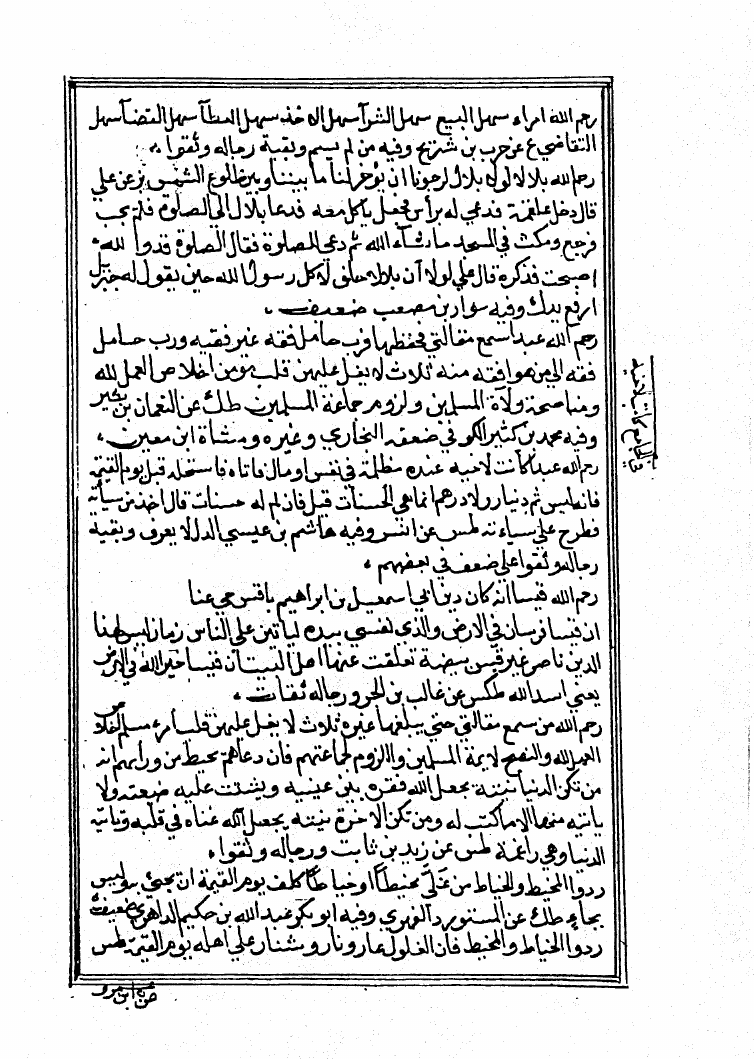 رحم الله امراء سهل البيع سهل الشرآ سهل الاخذ سهل العطآ سهل القضآ سهل
التقاضي ع عن حرب بن شريح وفيه من لم يسم وبقية رجاله وثقوا
رحم الله بلالا لولا بلال لرجونا ان يؤخر لنا ما بيننا وبين طلوع الشمس بز عن علي
قال دخل علقمة فدعي له برأس فجعل ياكل معه فدعا بلال الي الصلوة فلم يجب
فرجع ومكث في المسجد ما شآء الله ثم دعي للصلوة فقال الصلوة قد والله
اصبحت فذكره قال علي لولا أن بلالا حلف لاكل رسول الله حين يقول له جبريل
ارفع يدك وفيه سوار بن مصعب ضعيف
رحم الله عبدا سمع مقالتي فحفظها فرب حامل فقه غير فقيه ورب حامل
فقه الي من هو افقه منه ثلاث لا يغل عليهن قلب مومن اخلاص العمل لله
ومناصحة ولاة المسلمين ولزوم جماعة المسلمين طك عن النعمان بن بشير
وفيه محمد بن كثير الكوفي ضعفه البخاري وغيره ومشاة ابن معين
رحم الله عبدا كانت لاخيه عنده مظلمة في نفس او مال فاتاه فاستحله قبل يوم القيمة
فانه ليس ثم دينار ولا درهم انما هي الحسنات قيل فان لم له حسنات قال اخذ من سيأته
فطرح علي سياءته طس عن انس وفيه هاشم بن عيسي الدلا يعرف وبقية
رجاله وثقوا علي ضعف في بعضهم
رحم الله قيسا انه كان دين ابي اسمعيل بن ابراهيم يا قيس حي عنا
ان قيسا فرسان في الارض والذي نفسي بيده لياتين علي الناس زمان ليس لهذا
الدين ناصر غير قيس بيضة تفلقت عنها اهل البيت ان قيسا خير الله في الارض
يعني اسد الله طكس عن غالب بن الحر ورجاله ثقات
رحم الله من سمع مقالتي حتي يبلغها غيره ثلاث لا يغل عليهن قلب امرء مسلم اخلاص
العمل لله والنصح لايمة المسلمين واللزوم لجماعتهم فان دعاهم يحيط من ورايهم انه
من تكن الدنيا نيته يجعل الله فقره بين عينيه ويشتت عليه ضيعته ولا
ياتيه منها الا ما كتب له ومن تكن الاخرة نيته يجعل الله غناه في قلبه وتاتيه
الدنيا وهي راغمة طس عن زيد بن ثابت ورجاله وثقوا
ردوا المخيط والخياط من غل مخيطا او خياطا كلف يوم القيمة ان يجئ به وليس
بجاء طك عن المستورد الفهري وفيه ابو بكر عبد الله بن حكيم الداهري ضعيف
ردوا الخياط والمخيط فان الغلول عار ونار وشنار علي اهله يوم القيمة طس
في الجامع كانت لاخيه